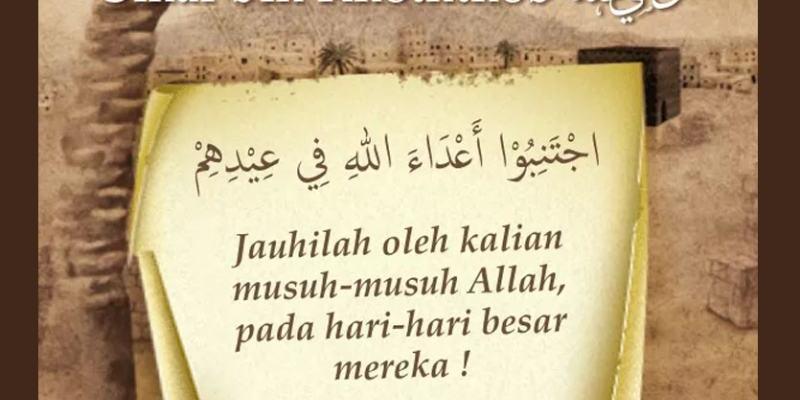 اجْتَنِبُوْا أَعْدَاءَ اللهِ فِي عِيْدِهِمْ
Jauhilah oleh kalian
musuh-musuh Allah,
pada hari-hari besar
mereka !